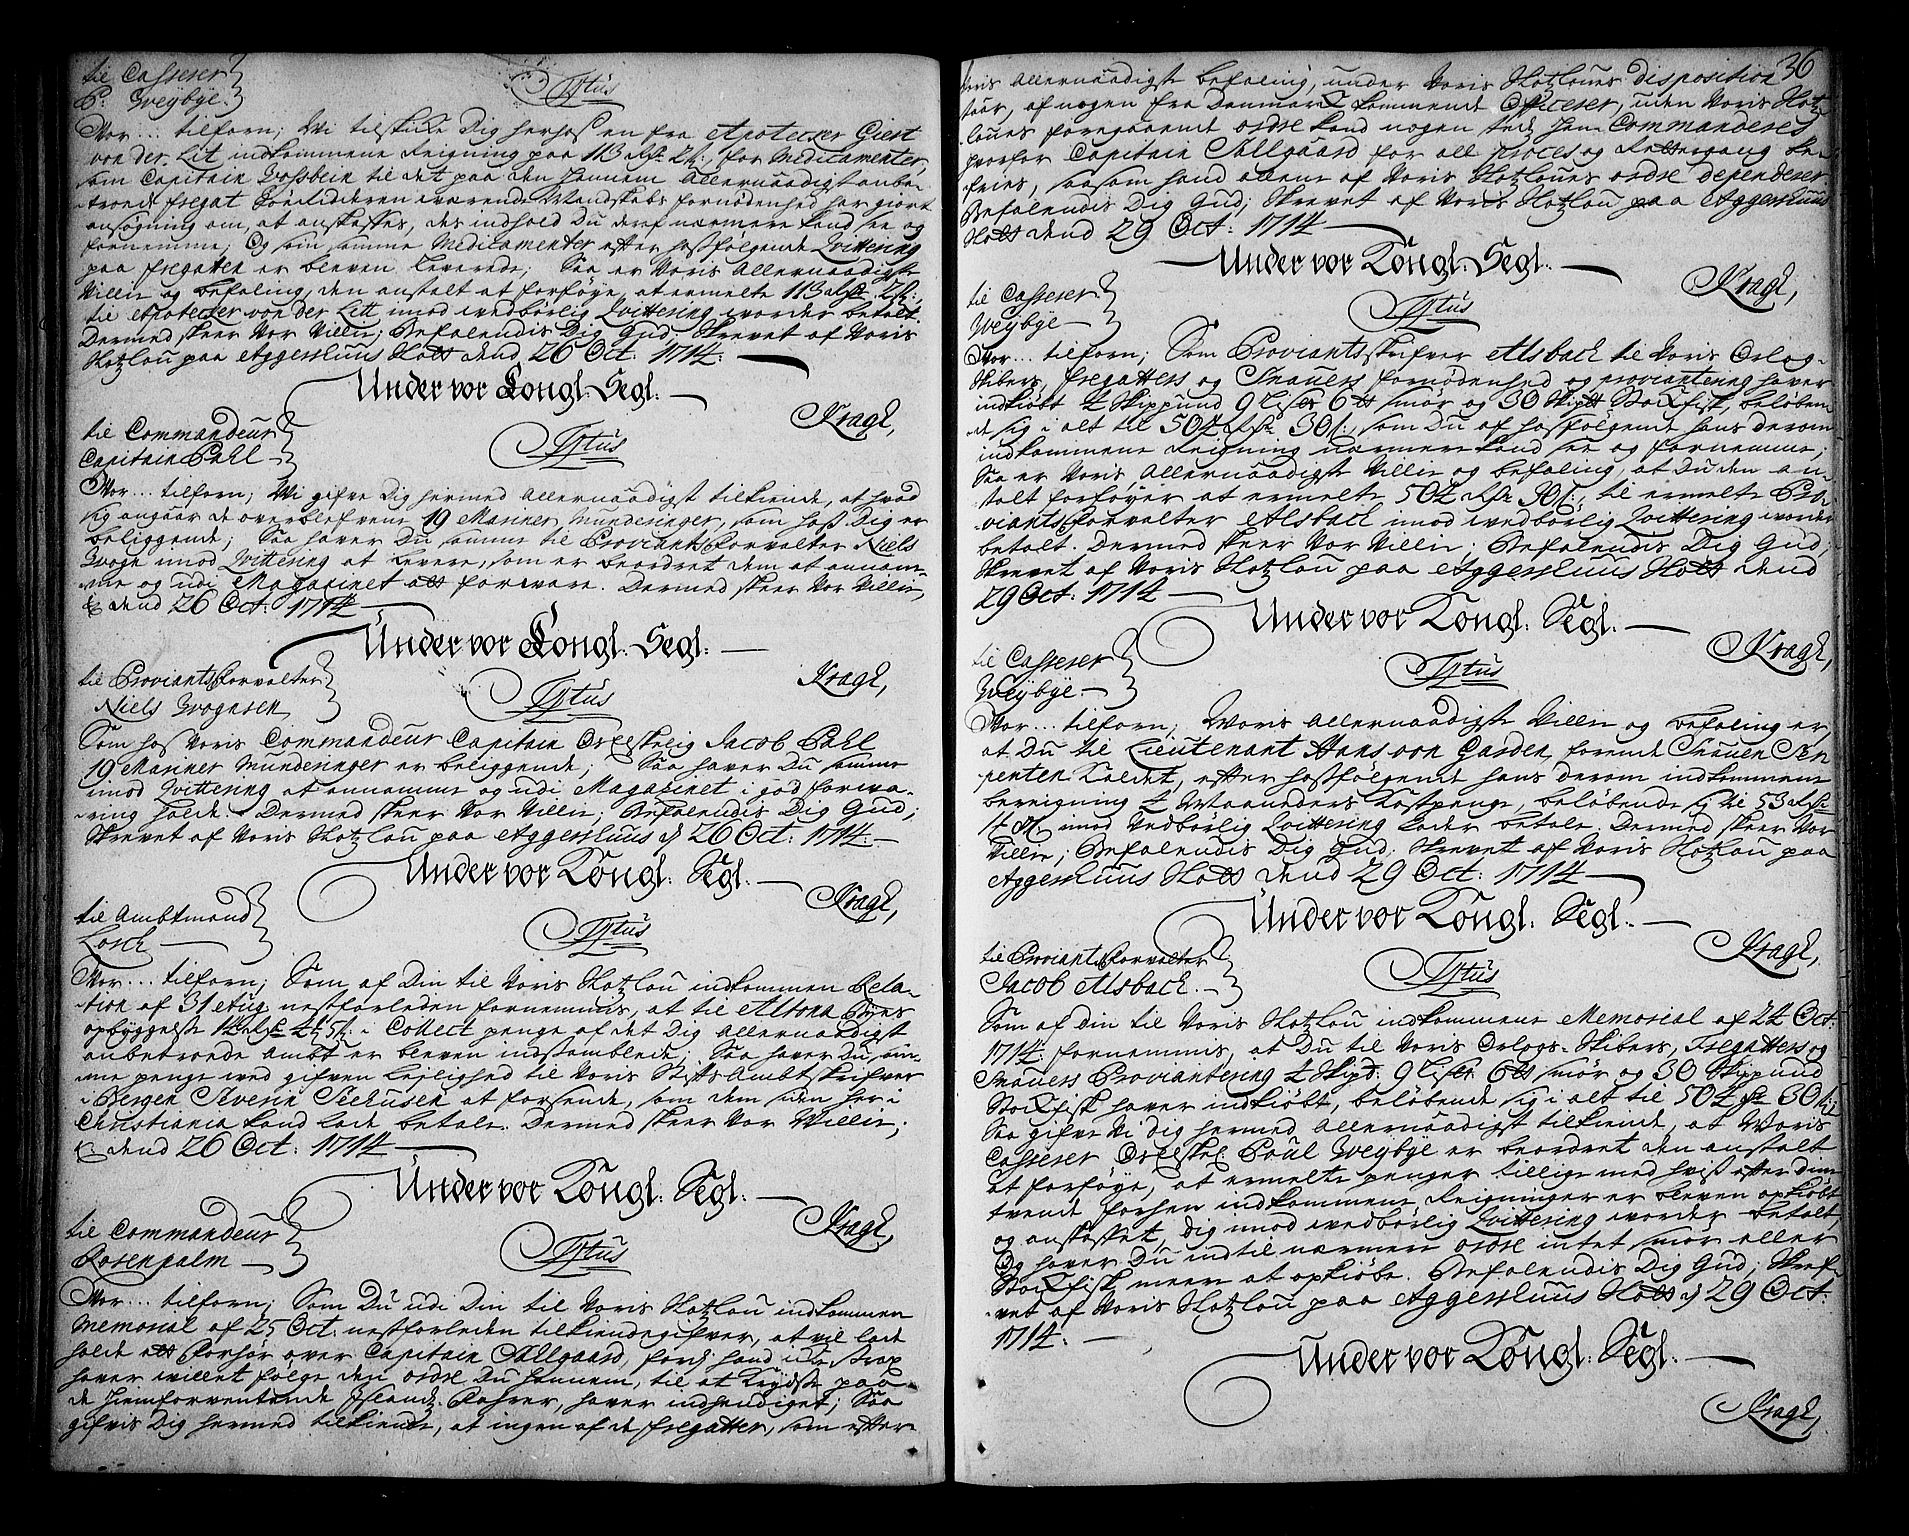 til Casserer
P: Weybye.
Tjtus
Vor... tilforn; Vi tilskicke Dig herhos en fra Apotecker Giert
von der Lit indkommene Reigning paa 113 rdr 2 s: for Medicamenter,
som Capitain Vosbein til det paa den hannem Allernaadigst anbe-
troede fregat Sørlideren værende Mandskabs fornødenhed har giort
ansøgning om, at anskaffes, des indhold Du deraf nærmere kand see og
fornemme; Og som samme Medicamenter efter hosfølgende Qvittering
paa fregatten er bleven leverede; Saa er Voris Allernaadigste
Villie og befaling, den anstalt at forføye, at ermelte 113 rdr 2 s:,
til Apotecker von der Litt imod vedbørlig Qvittering vorder betalt.
Dermed skeer Vor Villie; Befalendis Dig Gud; Skrevet af Voris
Slotzlou paa Aggershuus Slott dend 26 Oct: 1714.
Under vor Kongl: Segl.
Kragh,
til Commandeur
Capitain Pahl
Tjtus
Vor... tilforn; Vi gifve Dig hermed Allernaadigst tilkiende, at hvad
sig angaar de overblefvene 19 Mariner Munderinger, som hos Dig er
beliggende; Saa haver Du samme til Proviantsforvalter Niels
Wogn imod Qvittering at levere, som er beordret dem at annam-
me og udi Magazinet att forvare. Dermed skeer Vor Villie,
&c dend 26 Oct: 1714
Under vor Kongl: Segl.
Kragh,
til Proviantsforvalter
Niels Wognsen
Tjtus
Som hos Voris Commandeur Capitain Os elskelig Jacob Pahl
19 Mariner Munderinger er beliggende; Saa haver Du samme
imod Qvittering at annamme og udi Magazinet i god forva-
ring holde. Dermed skeer Vor Villie; Befalendis Dig Gud;
Skrevet af Voris Slotzlou paa Aggershuus d 26 Oct: 1714.
Under vor Kongl: Segl.
Kragh,
til Ambtmand
Lorch
Tjtus
Vor... tilforn; Som af Din til Voris Slotzlou indkommen Rela-
tion af 31 Aug. nestforleden fornemmis, at til Altona Byes
opbyggelse rdr s: i Collect penge af det Dig Allernaadigst
anbetroede Ambt er bleven indsamblede; Saa haver Du sam-
me penge ved gifven leylighed til Voris Stifts Ambtskrifver
i Bergen Severin Seehusen at forsende, som dem siden her i
Christiania kand lade betale. Dermed skeer Vor Villie;
&c: dend 26 Oct: 1714
Under vor Kongl: Segl.
Kragh,
til Commandeur
Rosenpalm
Tjtus
Vor... tilforn; Som Du udi Din til Voris Slotzlou indkommen
Memorial af 25 Oct: nestforleden tilkiendegifver, at vil lade
holde ett forhør over Capitain Sallgaard, fordj hand icke strax
haver villet følge den ordre Du hannem, til at krydse paa
de hiemforventende Islandz farer, haver indhendiget; Saa
gifves Dig hermed tilkiende, at ingen af de fregatter, som efter
36
Voris Allernaadigste befaling, under Voris Slotzloues disposition
staar, af nogen fra Danmark kommende Officerer, uden Voris Slotz
loues foregaaende ordre kand nogen sted hen Commanderes
hvorfor Capitain Sallgaard for all proces og Rettergang be-
fries, saasom hand allene af Voris Slotzloues ordre dependerer
Befalendis Dig Gud; Skrevet af Voris Slotzlou paa Aggershuus
Slott dend 29 Oct: 1714
Under vor Kongl: Segl.
Kragh,
til Casserer
Weybye
Tjtus
Vor... tilforn; Som Proviantsskrifver Alsbach til Voris Orlog-
Skibers, fregatters og Snauers fornødenhed og proviantering haver
indkiøbt 4 Skippund 9 Lisr 6 tt smør og 30 Skipd Stockfisk, beløben-
de sig i alt til 504 rdr 30 s:, som Du af hosfølgende hans derom
indkommene Reigning nærmere kand see og fornemme;
Saa er Voris Allernaadigste Villie og befaling, at Du den an-
stalt forføyer at ermelte 504 rdr 30 s:, til ermelte Pro-
viantsforvalter Alsbach imod vedbørlig Qvittering vorder
betalt. Dermed skeer Vor Villie; Befalendis Dig Gud;
Skrevet af Voris Slotzlou paa Aggershuus Slott dend
29 Oct: 1714
Under vor Kongl: Segl.
Kragh,
til Casserer
Weybye
Tjtus
Vor... tilforn; Voris Allernaadigste Villie og befaling er,
at Du til Lieutenant Hans von Garden, førende Snauen Ser-
penten kaldet, efter hosfølgende hans derom indkommene
bereigning 4 Maaneders Kostpenge, beløbende sig til 53 rdr
imod Vedbørlig Qvittering lader betale. Dermed skeer Vor
Villie; Befalendis Dig Gud. Skrevet af Voris Slotzlou paa
Aggershuus Slott dend 29 Oct: 1714
Under vor Kongl: Segl.
Kragh,
til Proviantforvalter
Jacob Alsbach.
Tjtus
Som af din til Voris Slotzlou indkommene Memorial af 24 Oct:
1714. fornemmis, at Du til Voris Orlogs-Skibers, Fregatters og
Snauers Proviantering 4 Skipd: 9 Liser 6 tt smør og 30 Skippund
Stockfisk haver indkiøbt, beløbende sig i alt til 504 rdr 30 s:
Saa gifve Vi dig hermed Allernaadigst tilkiende, at Voris
Casserer Os elskel. Poul Weybye er beordret den anstalt
at forføye, at ermelte penger tillige med hvis efter dine
tvende forhen indkommene Reigninger er bleven opkiøbt
og anskaffet, dig imod vedbørlig Qvittering vorder betalt,
Og haver Du indtil nærmere ordre intet smør eller
Stockfisk meere at opkiøbe. Befalendis Dig Gud; Skref-
vet af Voris Slotzlou paa Aggershuus Slott d 29 Oct:
1714.
Under vor Kongl: Segl.
Kragh,